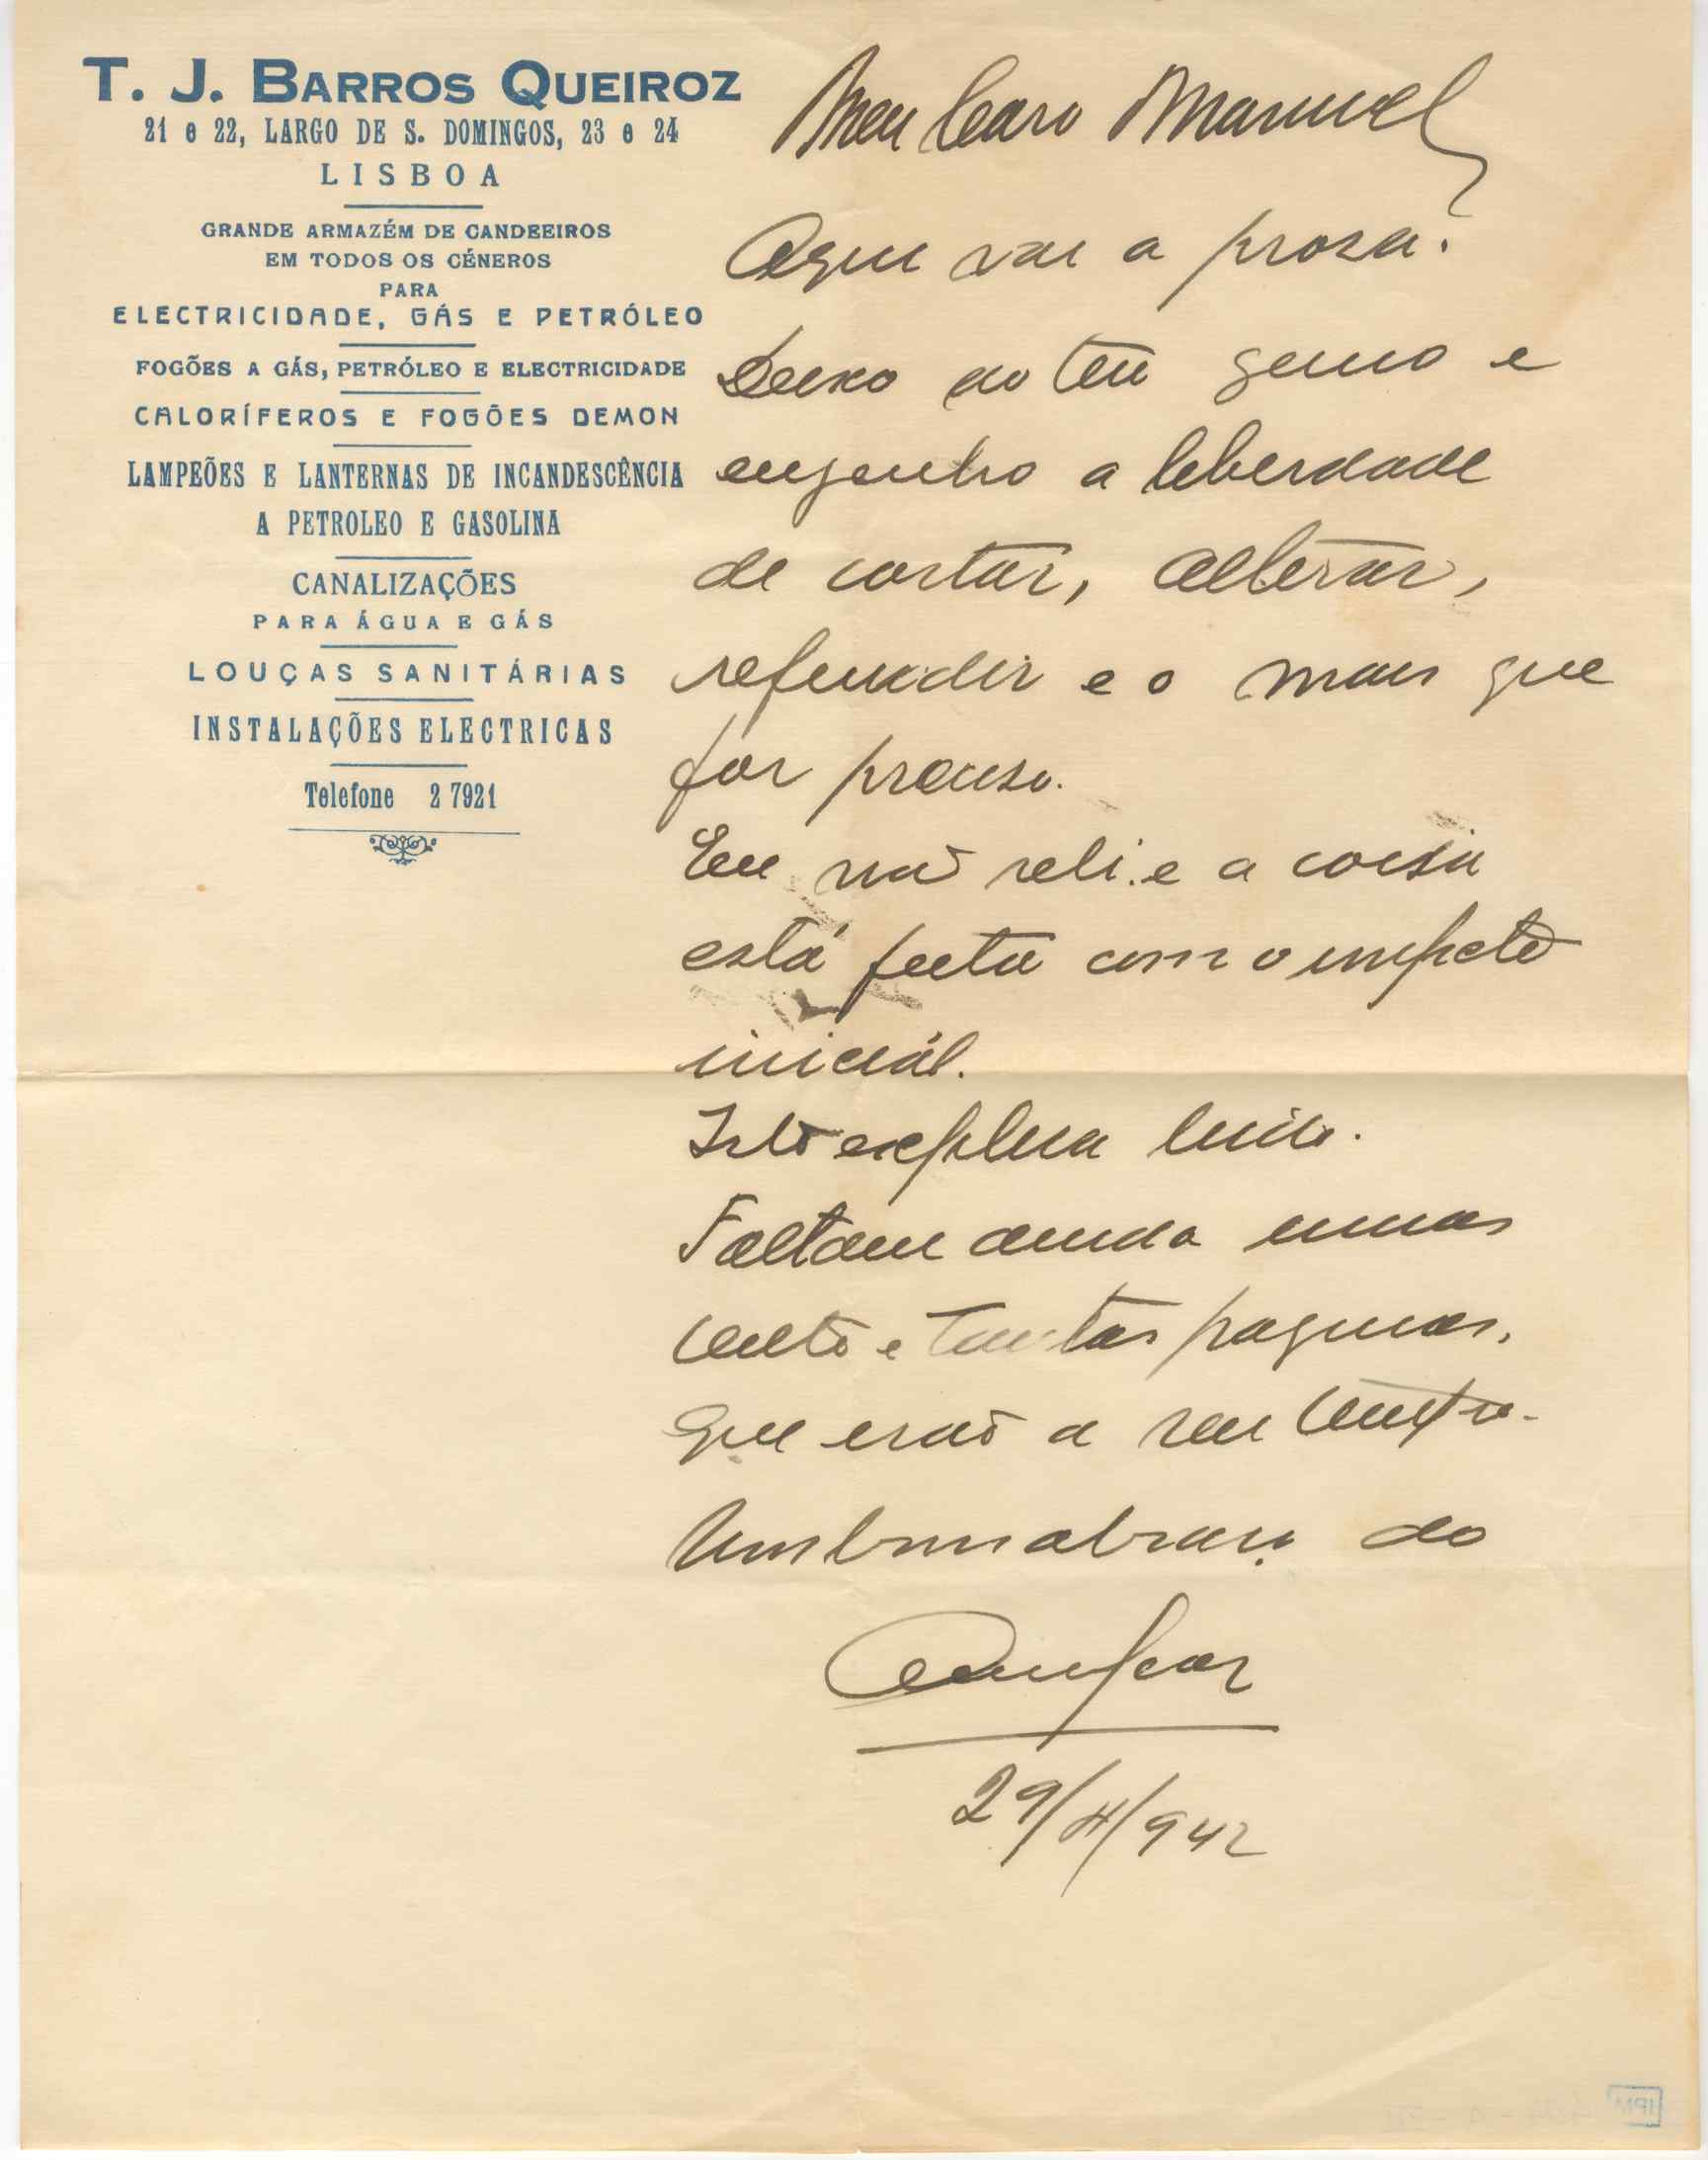 T. J. BARROS QUEIROZ
21 e 22, LARGO DE S. DOMINGOS, 23 e 24
LISBOA
GRANDE ARMAZÉM DE CANDEEIROS
EM TODOS OS GÉNEROS
PARA
ELECTRICIDADE, GÁS E PETRÓLEO
FOGÕES A GÁS, PETRÓLEO E ELECTRICIDADE
CALORÍFEROS E FOGÕES DEMON
LAMPEÕES E LANTERNAS DE INCANDESCÊNCIA
A PETROLEO E GASOLINA
CANALIZAÇÕES
PARA ÁGUA E GÁS
LOUÇAS SANITÁRIAS
INSTALAÇÕES ELECTRICAS
Telefone 2 7921
Meu Caro Manuel
Aqui vai a prosa.
Deixo ao teu genio e
engenho a liberdade
de cortar, alterar,
refundir e o mais que
for preciso.
Eu não reli e a coisa
está feita com o impeto
inicial.
Isto explica tudo.
Faltam ainda umas
cento e tantas paginas,
que irão a seu tempo.
Um bom abraço do
29/ /942
IPM